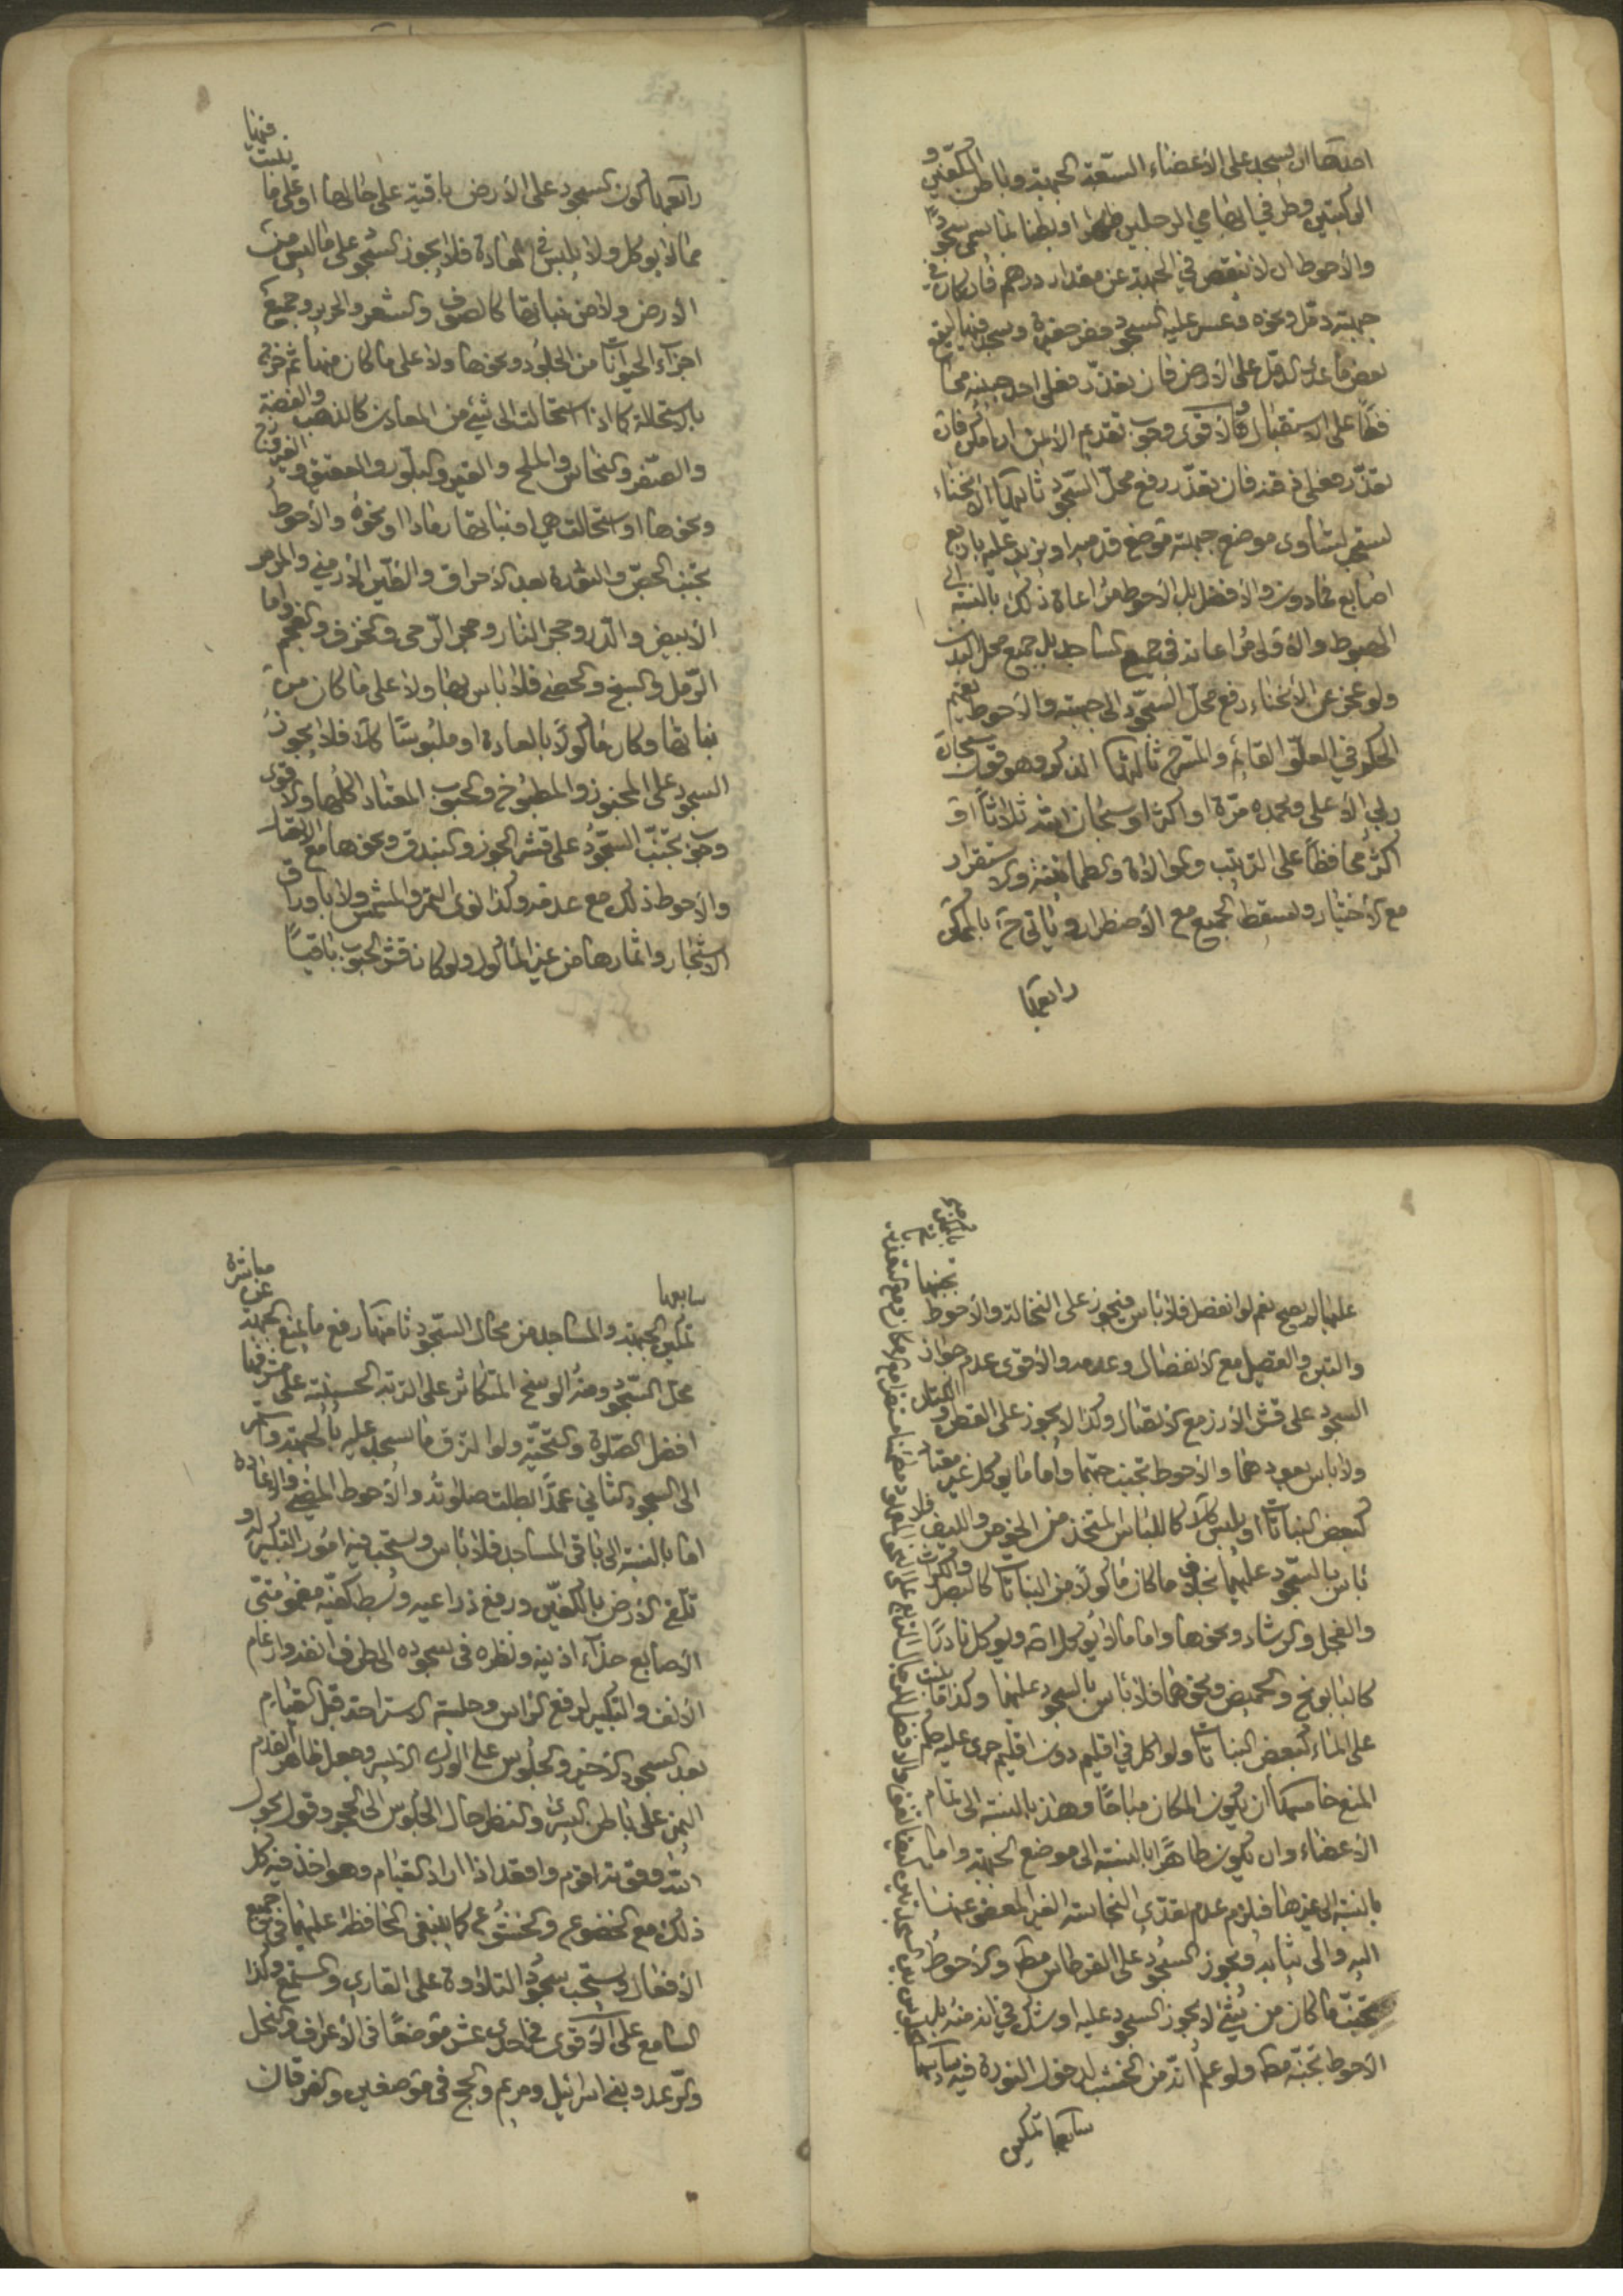 احدها ان يسجد على الأعضاء السّبعة الجبهة وباطن الكفّين و
الركبتين وطرفي ابهامي الرجلين ظهرا او بطنا بما يسمى سجودًا
والأحوط ان لا ينقص في الجبهة عن مقدار درهم فان كان في
جبهته دمّل ونحوه وعسر عليه السجود حفر حفيرة وسجد فيها ليقع
بعض ما عدى الدمّل على الأرض فان تعذّر فعلى احد جبينيه محا
فظًا على الاستقبال والأقوى وجوب تقديم الأيمن ان امكن فان
تعذّر فعلى ذقنه فان تعذّر رفع محلّ السّجود ثانيها الانحناء
ليستقيم ليتساوى موضع جبهته موضع قدميه او يزيد عليه باربع
اصابع فما دون والأفضل بل الأحوط مراعاة ذلك بالنسبة الى
الهبوط والأولى مراعاته في جميع المساجد بل جميع محل البدن
ولو عجز عن الأنحناء رفع محلّ السّجود الى جبهته والأحوط
ثالثها الذكر وهو قول سبحان
ربي الأعلى وبحمده مرّة او اكثر او سبحان الله ثلاثًا او
اكثر محافظًا على الترتيب والموالاة والطمأنينة والاستقرار
مع الأختيار ويسقط الجميع مع الأضطرار ويأتي ح بالممكن
رابعها
رابعها كون السجود على الأرض باقية على حالها او على ما ينبت فيها
مما لا يؤكل ولا يلبس في العادة فلا يجوز السّجود على ما ليس من
الأرض ولا من نباتها كالصوف والشعر والحرير وجميع
اجزاء الحيوانات من الجلود ونحوها ولا على ما كان منها ثم خرج
بالاستحالة كما اذا استحالت الى شيء من المعادن كالذهب والفضة
والصّفر والنحاس والملح والقير والبلّور والعقيق والفيروزج
ونحوها او استحالت هي او نباتها رمادا او نحوه والأحوط
تجنّب الجصّ والنورة بعد الأحراق والطّين الأرمني والمرمر
الأبيض والدّر وحجر النار وحجر الرّحى والخزف والفحم واما
الرّمل والسبخ والحصى فلا بأس بها ولا على ما كان من
نباتها وكان مأكولًا بالعادة او ملبوسًا كك فلا يجوز
السجود على المخبوز والمطبوخ والحبوب المعتاد اكلها والأقوى
وجوب تجنّب السّجود على قشر الجوز والبندق ونحوها مع الاتصال
والأحوط ذلك مع عدمه وكذا نوى التمر والمشمش ولا باوراق
الأشجار واثمارها من غير المأكول ولو كان قشر الحبوب باقيًا
عليها لم يصح نعم لو انفصل فلا بأس فيجوز على النخالة والأحوط تجنبها
والتبن والقصيل مع الأنفصال وعدمه والأقوى عدم جواز
السجود على قشر الأرز مع الأتصال وكذا لا يجوز على القطن والكتان
ولا بأس بعودهما والأحوط تجنب حبّهما واما ما يؤكل غير معتاد
كبعض النباتات او يلبس كك كاللباس المتخذ من الخوص والليف فلا
بأس بالسّجود عليهما بخلاف ما كان مأكولًا من النباتات كالبصل والكراث
والفجل والرشاد ونحوها واما ما لا يؤكل الا دواء ويؤكل نادرًا
كالبابونج والحميض ونحوهما فلا بأس بالسجود عليهما وكذا ما نبت
على الماء كبعض النباتات ولو اكل في اقليم دون اقليم جرى عليه حكم
المنع خامسها ان يكون المكان مباحًا وهذا بالنسبة الى تمام
الأعضاء وان يكون طاهرًا بالنسبة الى موضع الجبهة واما
بالنسبة الى غيرها فيلزم عدم تعدّي النجاسة الغير المعفو عنها
اليه والى ثيابه ويجوز السّجود على القرطاس مط والأحوط
تجنّب ما كان من شيء لا يجوز السجود عليه او شك في انه منه بل
الأحوط تجنّبه مط ولو علم انّه من الخشب لدخول النورة فيه
سابعها تمكين
سابعها
تمكين الجبهة والمساجد من محال السّجود ثامنها رفع ما يمنع الجبهة عن مباشرة
محلّ السّجود ومنه الوسخ المتكاثر على التربة الحسينيّة على مشرّفها
افضل الصّلوة والتحيّة ولو الزق ما يسجد عليه بالجبهة واستمر
الى السجود الثاني عمدًا بطلت صلوته والأحوط المضي والأعادة
اما بالنسبة الى باقي المساجد فلا بأس ويستحب فيه امور التكبير له و
تلقّي الأرض بالكفّين ورفع ذراعيه وبسط كفّيه مضمومتي
الأصابع حذاء اذنيه ونظره في سجوده الى طرف انفه وارغام
الأنف والتكبير لرفع الرأس وجلسة الاستراحة قبل القيام
بعد السجود الأخير والجلوس على الورك الأيسر وجعل ظاهر القدم
اليمنى على باطن اليسرى والنظر حال الجلوس الى الحجر وقول بحول
الله وقوته اقوم واقعد اذا اراد القيام وهو اخذ فيه كل
ذلك مع الخضوع والخشوع كما ينبغي المحافظة عليهما في جميع
الأفعال ويستحب سجود التلاوة على القاري والمستمع وكذا
السامع على الأقوى في احدى عشر موضعًا في الأعراف والنحل
والرّعد وبني اسرائيل ومريم والحج في موضعين والفرقان